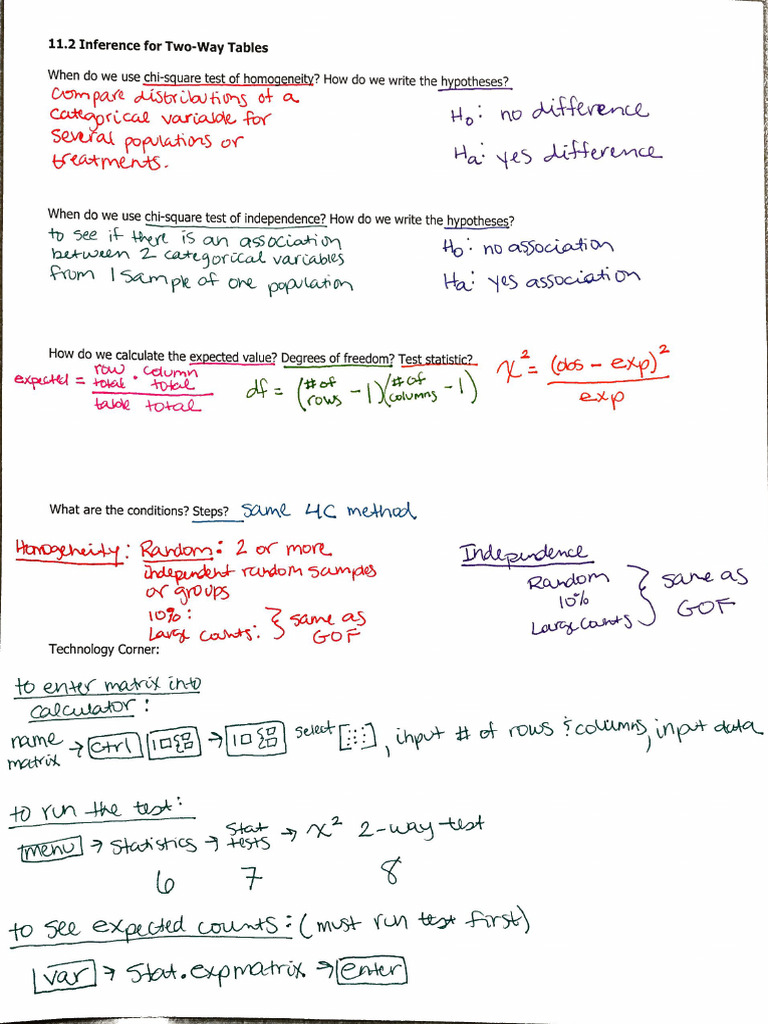 11.2 Inference for Two-Way Tables
When do we use chi-square test of homogeneity? How do we write the hypotheses?
Compare distributions of a
categorical variable for
several populations or
treatments.
Ho: no difference
Ha: yes difference
When do we use chi-square test of independence? How do we write the hypotheses?
to see if there is an association
between 2 categorical variables
from 1 sample of one population
Ho: no association
Ha: yes association
How do we calculate the expected value? Degrees of freedom? Test statistic?
expected = row total · column total / table total
df = (# of rows - 1)(# of columns - 1)
x² = (obs - exp)² / exp
What are the conditions? Steps? same 4C method
Homogeneity: Random: 2 or more
independent random samples
or groups
10%:
Large counts: } same as GOF
Independence
Random
10%
Large counts } same as GOF
Technology Corner:
to enter matrix into
calculator:
name matrix → ctrl → select , input # of rows & columns, input data
to run the test:
menu → statistics → stat tests → x² 2-way test
6 7 8
to see expected counts: (must run test first)
var → stat.expmatrix → enter